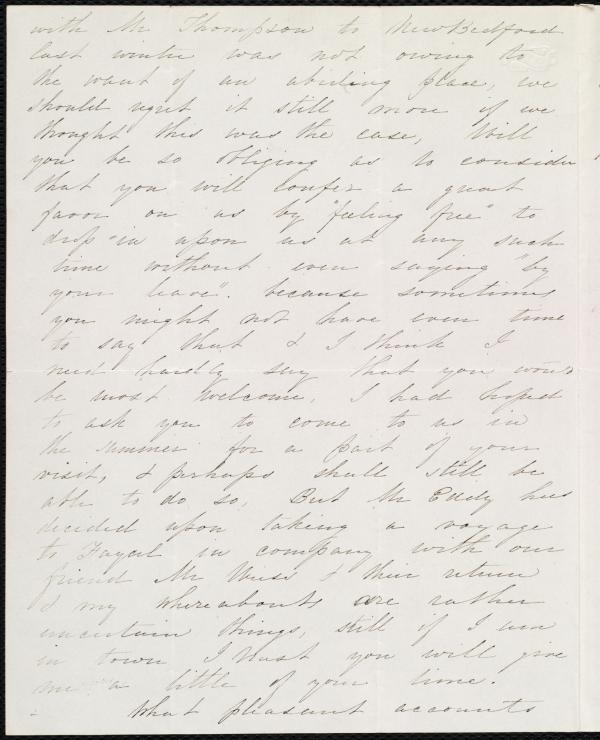 with Mr Thompson to New Bedford
last winter was not owing to
the want of an abiding place, we
should regret it still more if we
thought this was the case, Will
you be so obliging as to consider
that you will confer a great
favor on us by "feeling free" to
drop in upon us at any such
time without even saying "by
your leave". because sometimes
you might not have even time
to say that & I think I
need hardly say that you would
be most welcome, I had hoped
to ask you to come to us in
the summer for a part of your
visit, & perhaps shall still be
able to do so, But Mr Eddy has
decided upon taking a voyage
to Fayal in company with our
friend Mr & their return
& my whereabouts are rather
uncertain things, still if I am
in town I trust you will give
me a little of your time.
What pleasant accounts